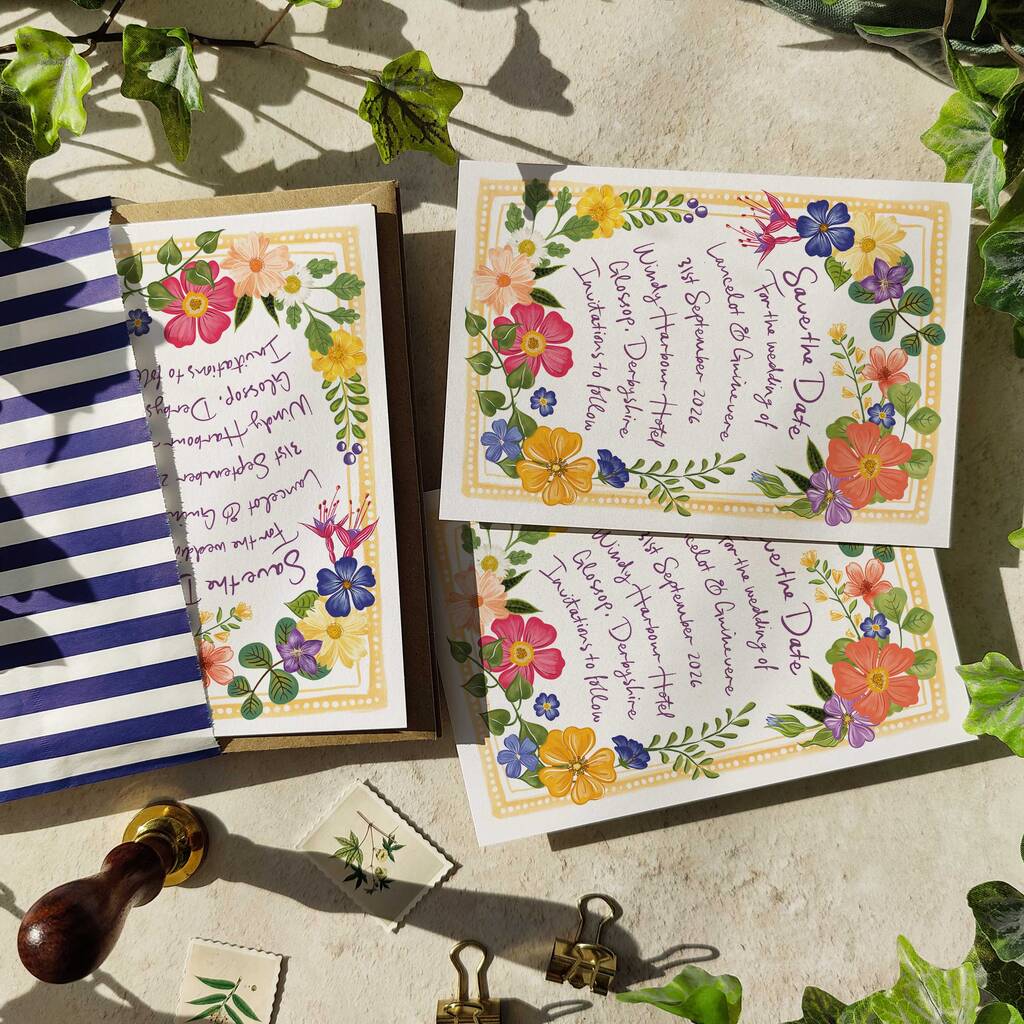 Save the Date
For the wedding of
Lancelot & Guinevere
31st September 2026
Windy Harbour Hotel
Glossop, Derbyshire
Invitations to follow
Save the Date
For the wedding of
Lancelot & Guinevere
31st September 2026
Windy Harbour Hotel
Glossop, Derbyshire
Invitations to follow
Save the
For the
Lancelot &
31st September
Windy Harbour
Glossop,
Invitations to